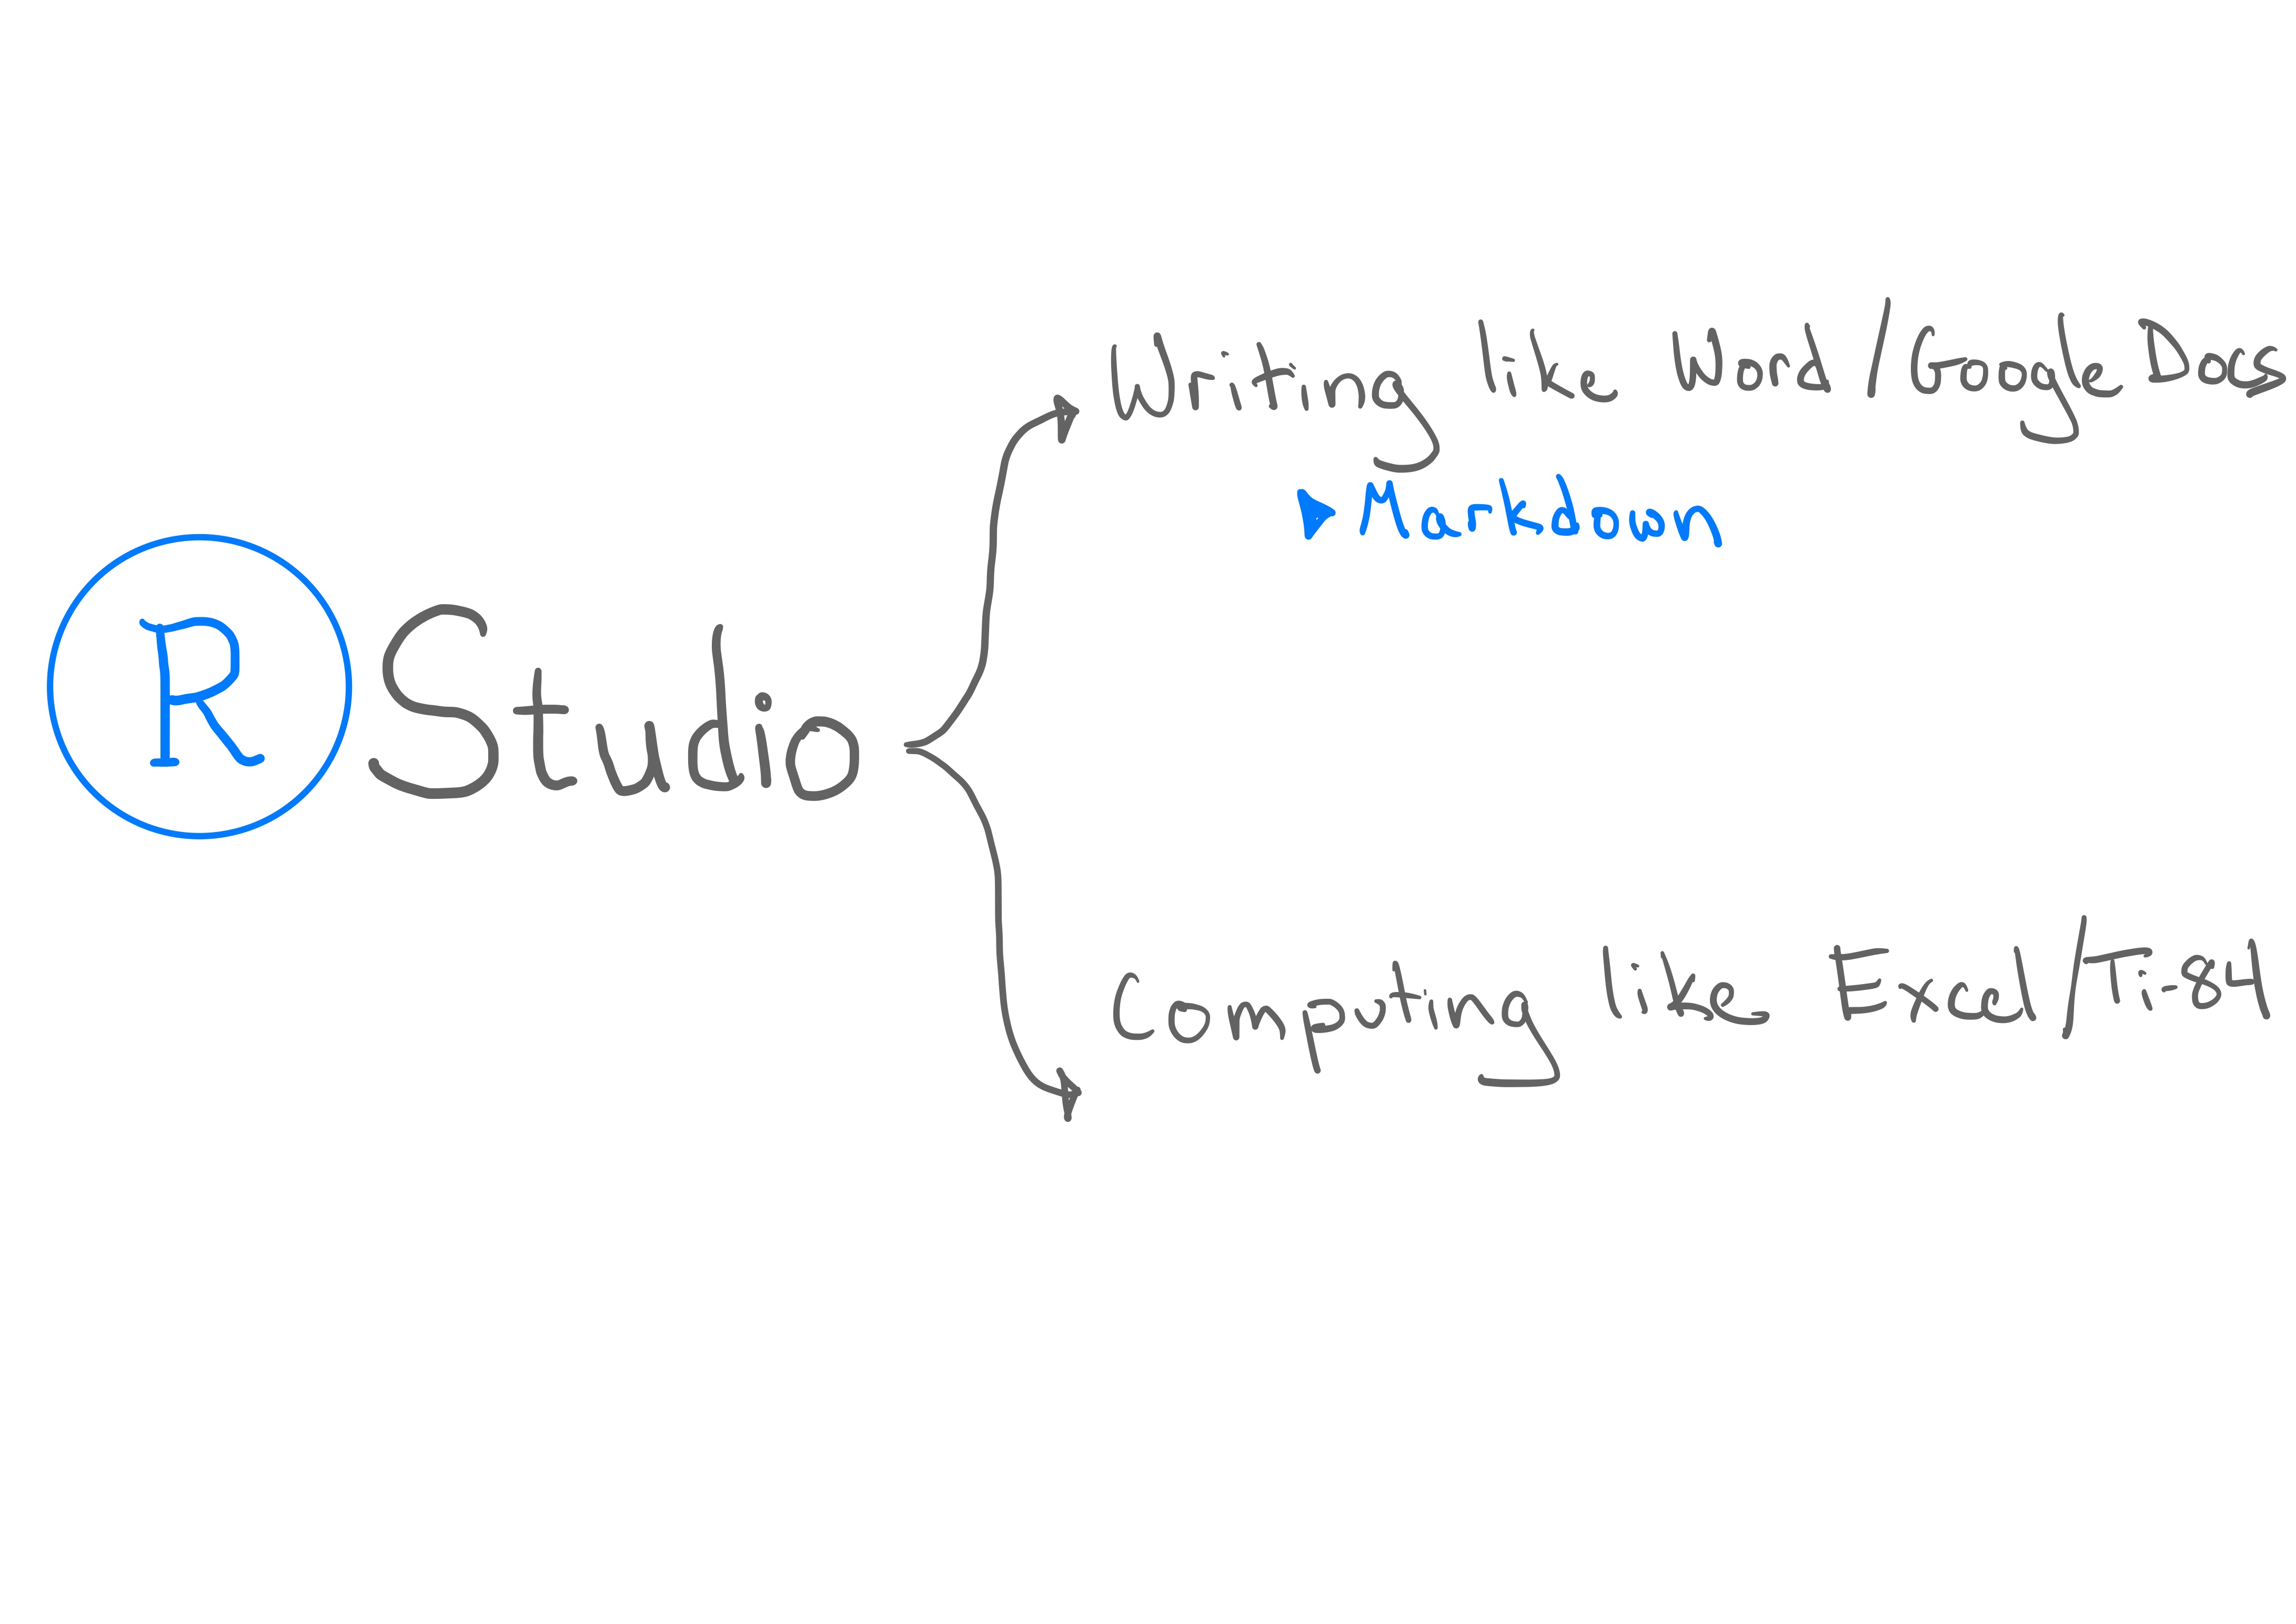 R Studio
Writing like Word/Google Docs
Markdown
Computing like Excel/Ti-84